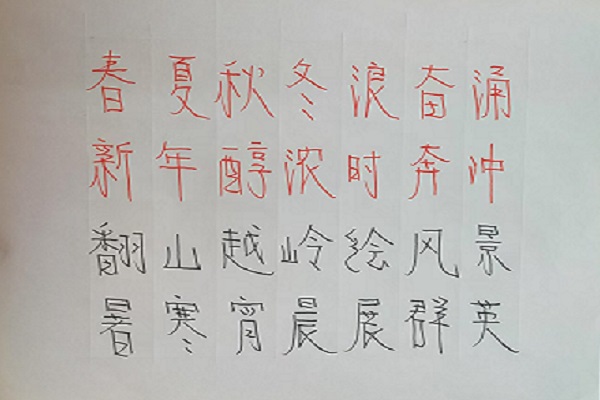 春夏秋冬浪奋涌
新年醇浓时奔冲
翻山越岭绘风景
暑寒宵晨展群英